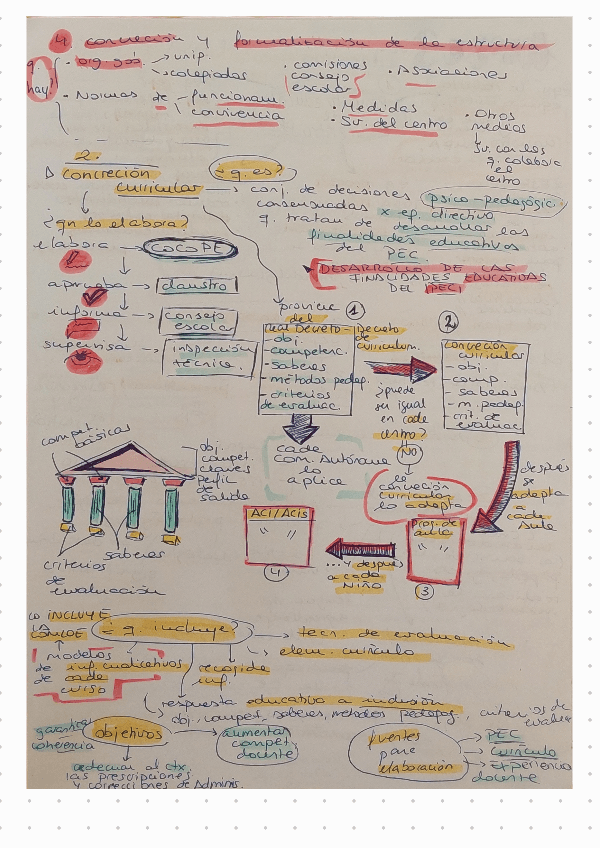 4. concreción y formalización de la estructura
q. hay?
• org. gos.
→ unip.
→ colegiados
• comisiones
consejo
escolar
• Asociaciones
• Normas de
funcionam.
convivencia
• Medidas
• Sv. del centro
• Otros
medios
Sv. con los
q. colabora
el
centro
2.
Concreción
curricular
¿q. es?
→ conj. de decisiones psico-pedagógic.
consensuadas x eq. directivo
q. tratan de desarrollar las
finalidades educativas
del PEC.
DESARROLLO DE LAS
FINALIDADES EDUCATIVAS
DEL PEC
¿qn lo elabora?
elabora → COCOPE
aprueba → claustro
informa → consejo
escolar
supervisa → inspección
técnica.
proviene
del
1
Real Decreto - Decreto
de
curriculum.
- obj.
- competenc.
- saberes
- métodos pedag.
- criterios
de evaluac.
2
Concreción
curricular
- obj.
- comp.
- saberes
- m. pedag.
- crit. de
evaluac.
¿puede
ser igual
en cada
centro?
NO
la
concreción
curricular
lo adapta
cada
Com. Autónoma
lo
aplica
después
se
adapta
a
cada
aula
Prog. de
aula
" "
3
... y después
a cada
niño
ACI/ACIs
" "
4
compet.
básicas
obj.
compet.
claves
perfil
de
salida
saberes
criterios
de
evaluación
lo INCLUYE
LA
¿q. incluye?
→ tecn. de evaluación
→ elem. currículo
modelos
de inf. cualitativos
de cada
curso
recogida
inf.
respuesta educativa a inclusión
obj., compet., saberes, métodos pedagog., criterios de
evaluac.
garantizar
coherencia
objetivos
aumentar
compet.
docente
adecuar al ctx.
las prescripciones
y correcciones de Adminis.
fuentes
para
elaboración
→ PEC
→ Currículo
→ Experiencia
docente